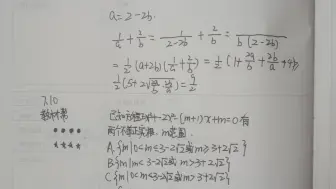 a=2-2b.
1/a + 2/b = 1/(2-2b) + 2/b = /(b(2-2b))
= 1/2 (a+2b)(1/a + 2/b) = 1/2 (1 + 2a/b + 2b/a + 4)
1/2 (5+2√(2a/b · 2b/a)) = 9/2
7.10
-2x²-(m+1)x+m=0 有
两个不等正实根, m范围
A. {m|0<m≤3-2√2或m≥3+2√2}
B. {m|m<3-2√2或m>3+2√2}
C. {m|0<m<3-2√2或m>3+2√2}